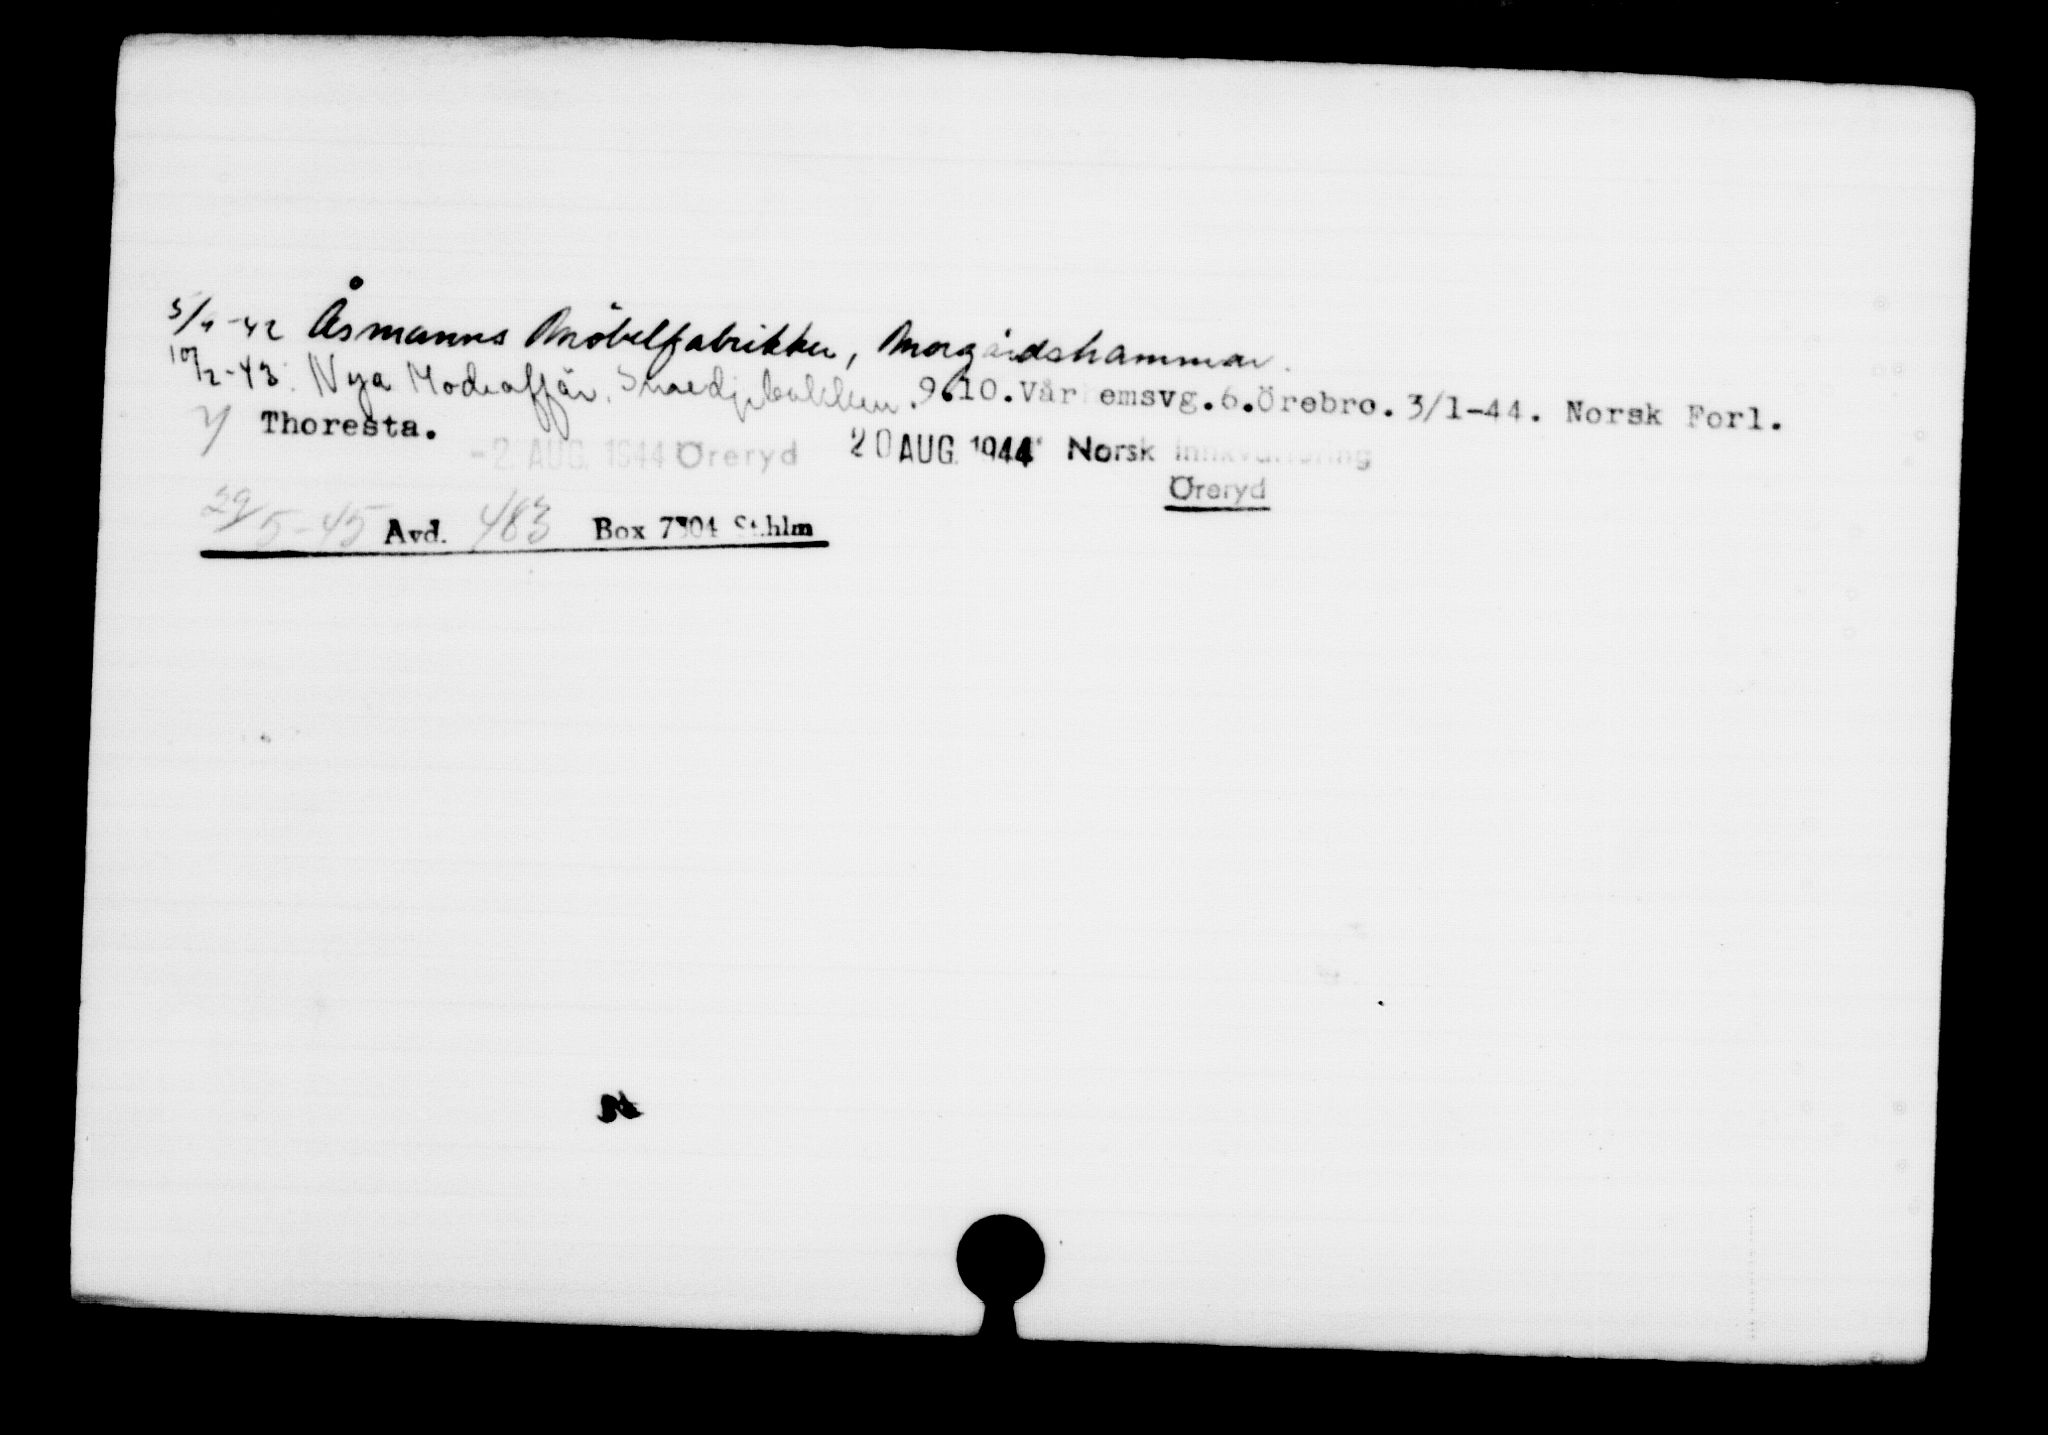 5/4-42 Åsmanns Möbelfabrikker, Morgårdshammar.
10/2-43. Nya Modeaffär, Smedjebakken. 9.10. Vårhemsvg. 6. Örebro. 3/1-44. Norsk Forl.
Thoresta.
-2. AUG. 1944 Öreryd 20 AUG. 1944 Norsk Innkvartering
Öreryd
29/5-45 Avd. 483 Box 7304 Sthlm